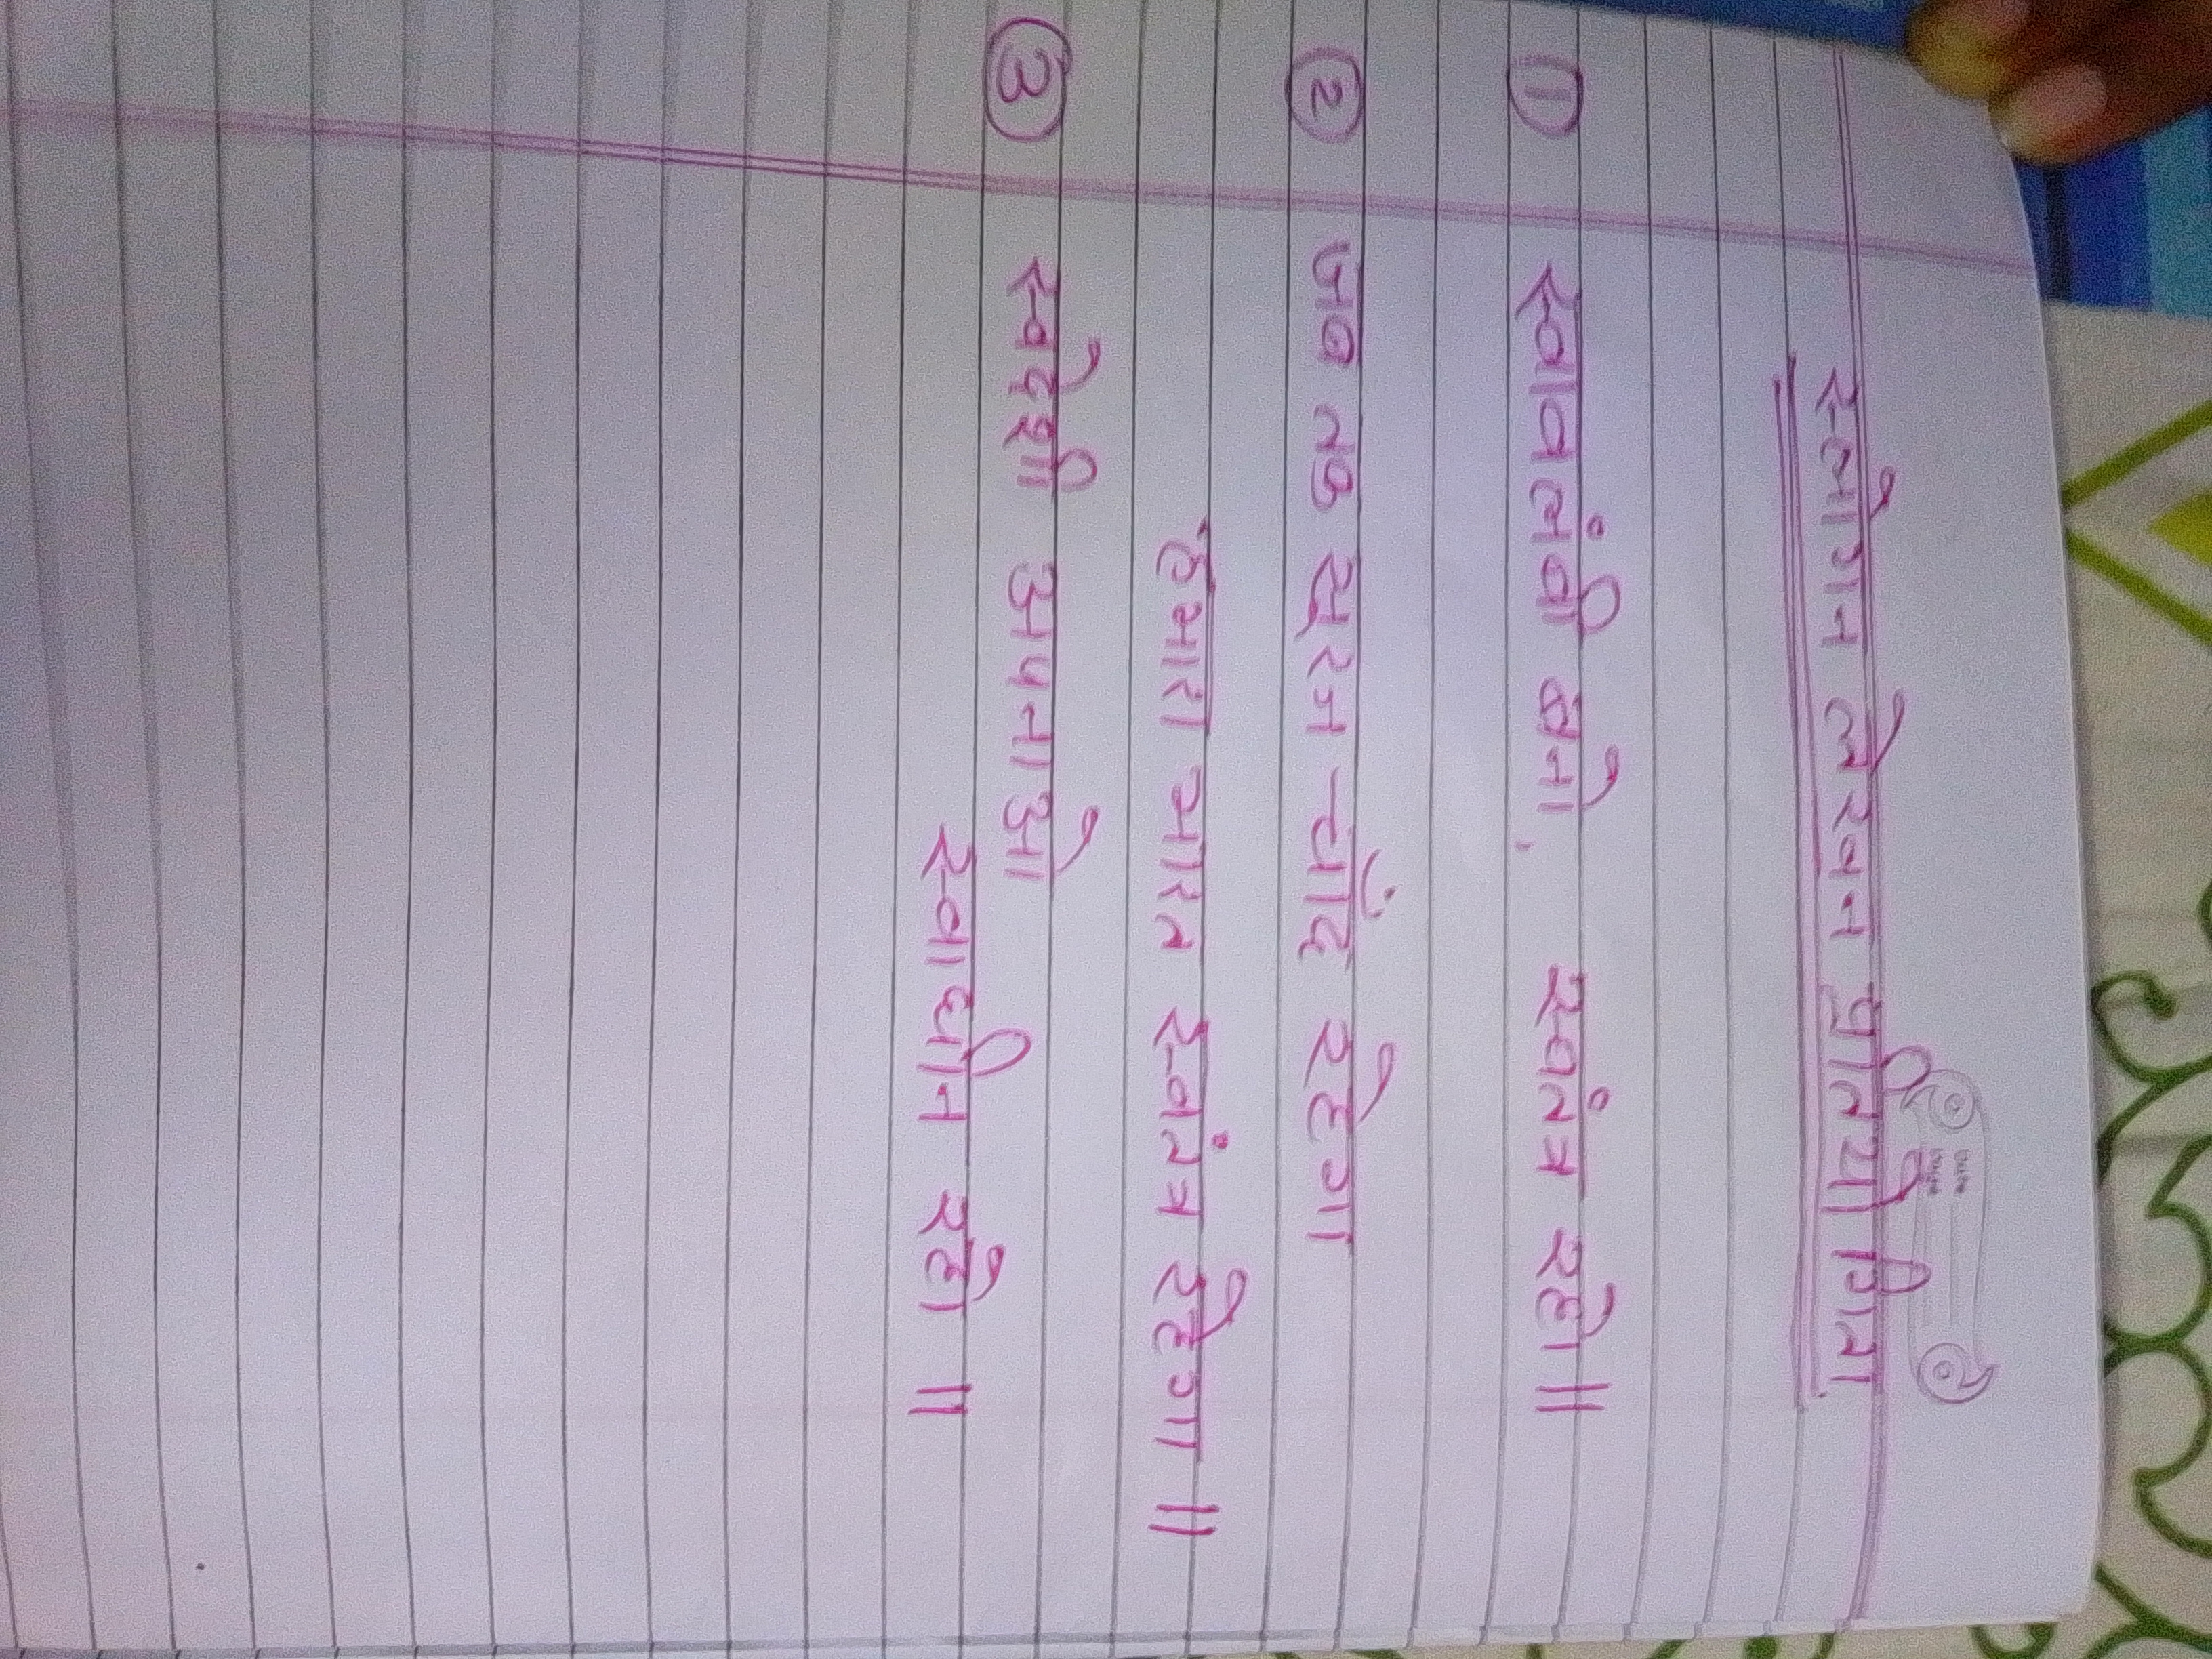 स्लोगन लेखन प्रतियोगिता
Date
Page
① स्वावलंबी बनो, स्वतंत्र रहो ॥
② जब तक सूरज चाँद रहेगा
हमारा भारत स्वतंत्र रहेगा ॥
③ स्वदेशी अपनाओ
स्वाधीन रहो ॥